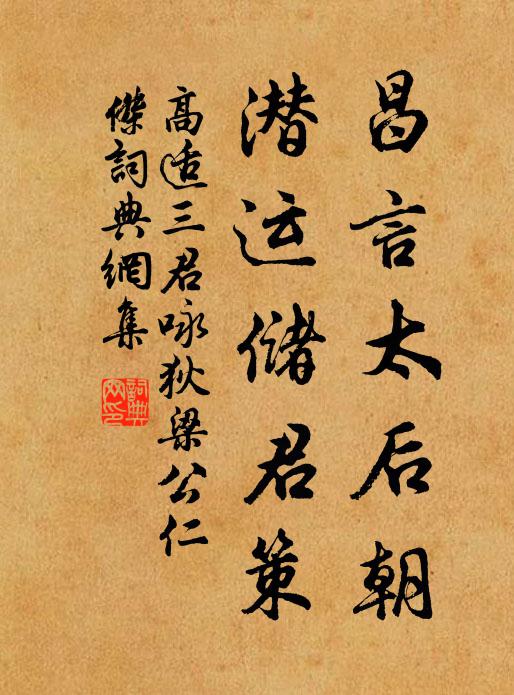 昌言太后朝
潜运储君策
高适三君咏狄梁公仁
傑詞典網集
詞典
网印